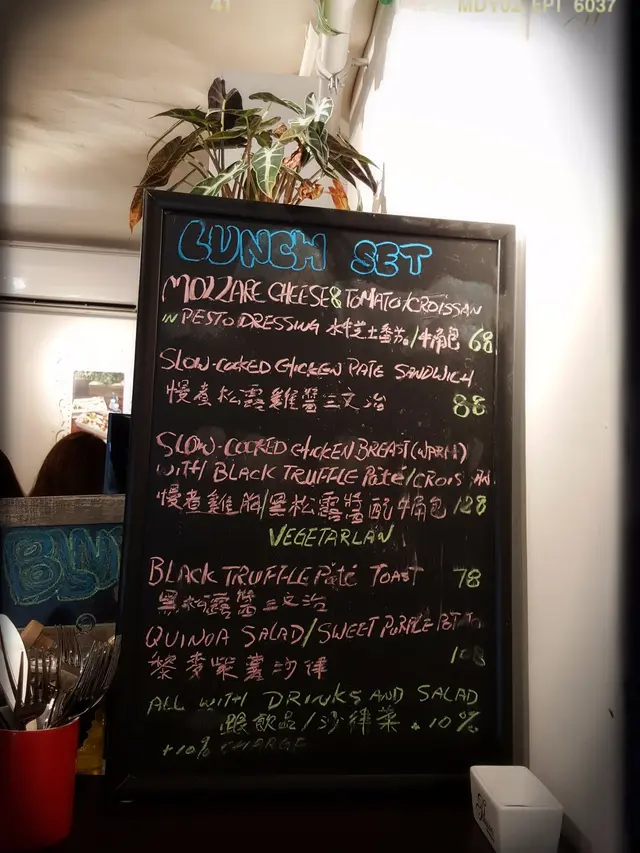 41
MDY02 EPT 6037
LUNCH SET
MOZZARE CHEESE & TOMATO/CROISSAN
IN PESTO DRESSING 水牛芝士番茄/牛角包 68
SLOW-COOKED CHICKEN PATE SANDWICH
慢煮松露雞醬三文治 88
SLOW-COOKED CHICKEN BREAST (WARM)
WITH BLACK TRUFFLE Pâté/CROIS AN
慢煮雞胸/黑松露醬配牛角包 128
VEGETARIAN
BLACK TRUFFLE Pâté TOAST 78
黑松露醬三文治
QUINOA SALAD/SWEET PURPLE POTATO
藜麥紫薯沙律 108
ALL WITH DRINKS AND SALAD
跟飲品/沙律菜 + 10%
+10% CHARGE